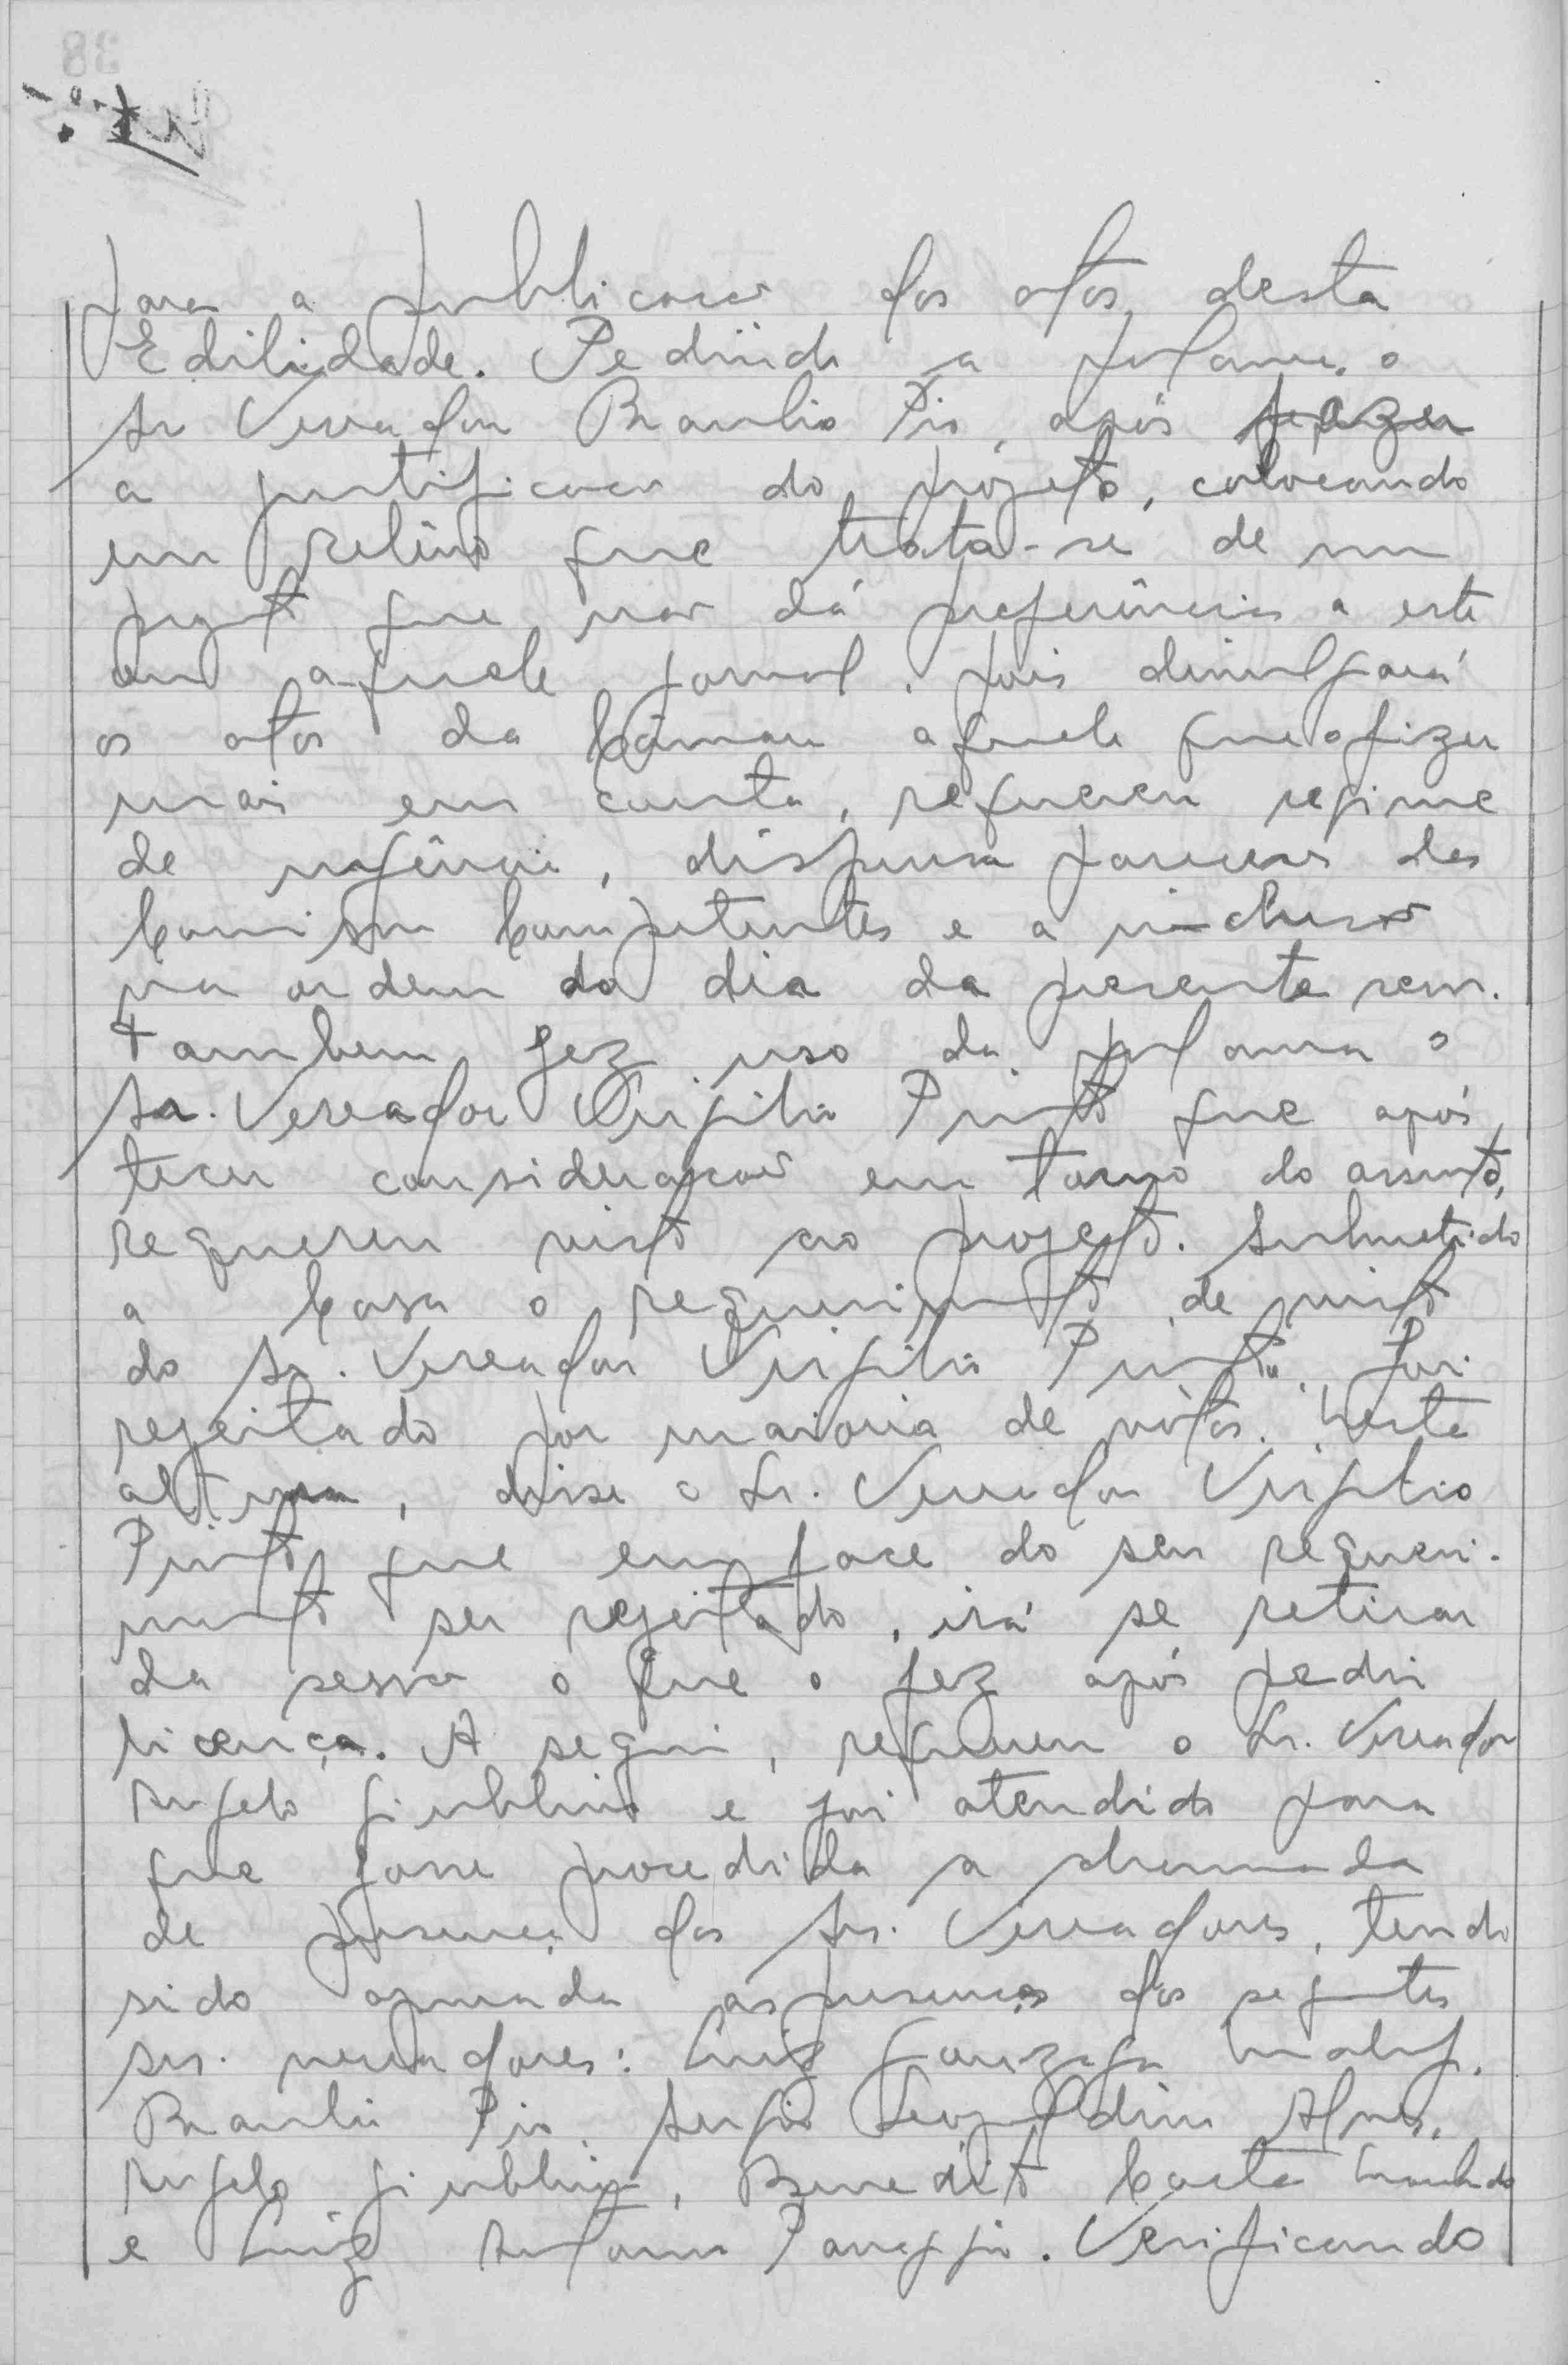 para a publicacao dos atos desta
Edilidade. Pedindo a palavra, o
sr Vereador Braulio Pio, após fazer
a justificacao do projeto, colocando
em relêvo que trata-se de um
projeto que nao dá preferência a este
ou aquele jornal, pois divulgará
os atos da Câmara aquele que o fizer
mais em conta, requereu regime
de urgência, dispensa pareceres das
Comissões Competentes e a inclusao
na ordem do dia da presente sessao.
Tambem fez uso da palavra o
Sr. Vereador Virgilio Pinto que após
tecer consideracoes em torno do assunto,
requereu visto ao projeto. Submetido
a Casa o requerimento de visto
do Sr. Vereador Virgilio Pinto, foi
rejeitado por maioria de votos. Nesta
altura, disse o Sr. Vereador Virgilio
Pinto que em face do seu requeri-
mento ser rejeitado, irá se retirar
da sessao o que o fez após pedir
licença. A seguir, requereu o Sr. Vereador
Angelo Giubbina e foi atendido para
que fosse procedida a chamada
de presença dos Srs. Vereadores, tendo
sido apurada as presenças dos seguintes
srs. vereadores: Luiz Gonzaga
Braulio Pio, Sergio Leopoldino Alves,
Angelo Giubbina, Benedito Costa Machado
e Luiz Antonio Panaggio. Verificando